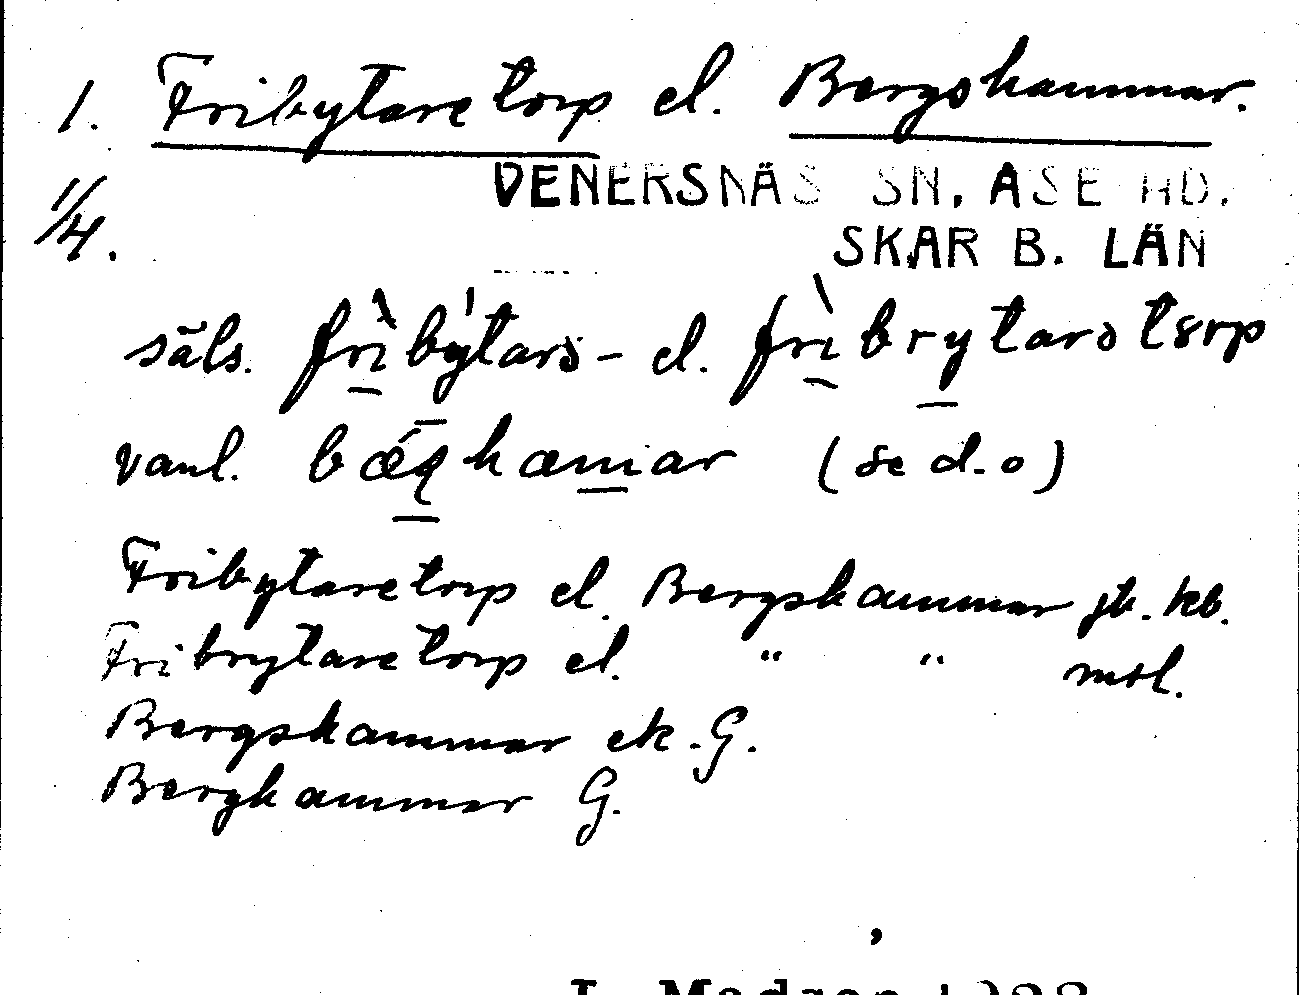 1. Fribytaretorp el. Bergshammar.
VENERSNÄS SN. ÅSE HD.
1/4.
SKAR B. LÄN
säls. frìbýtarə- el. frìbrytarətorp
vanl. bǽqhamar (se d. o)
Fribytaretorp el. Bergshammar jb. kb.
Fribrytaretorp el. " " mtl.
Bergshammar ek. G.
Berghammar G.